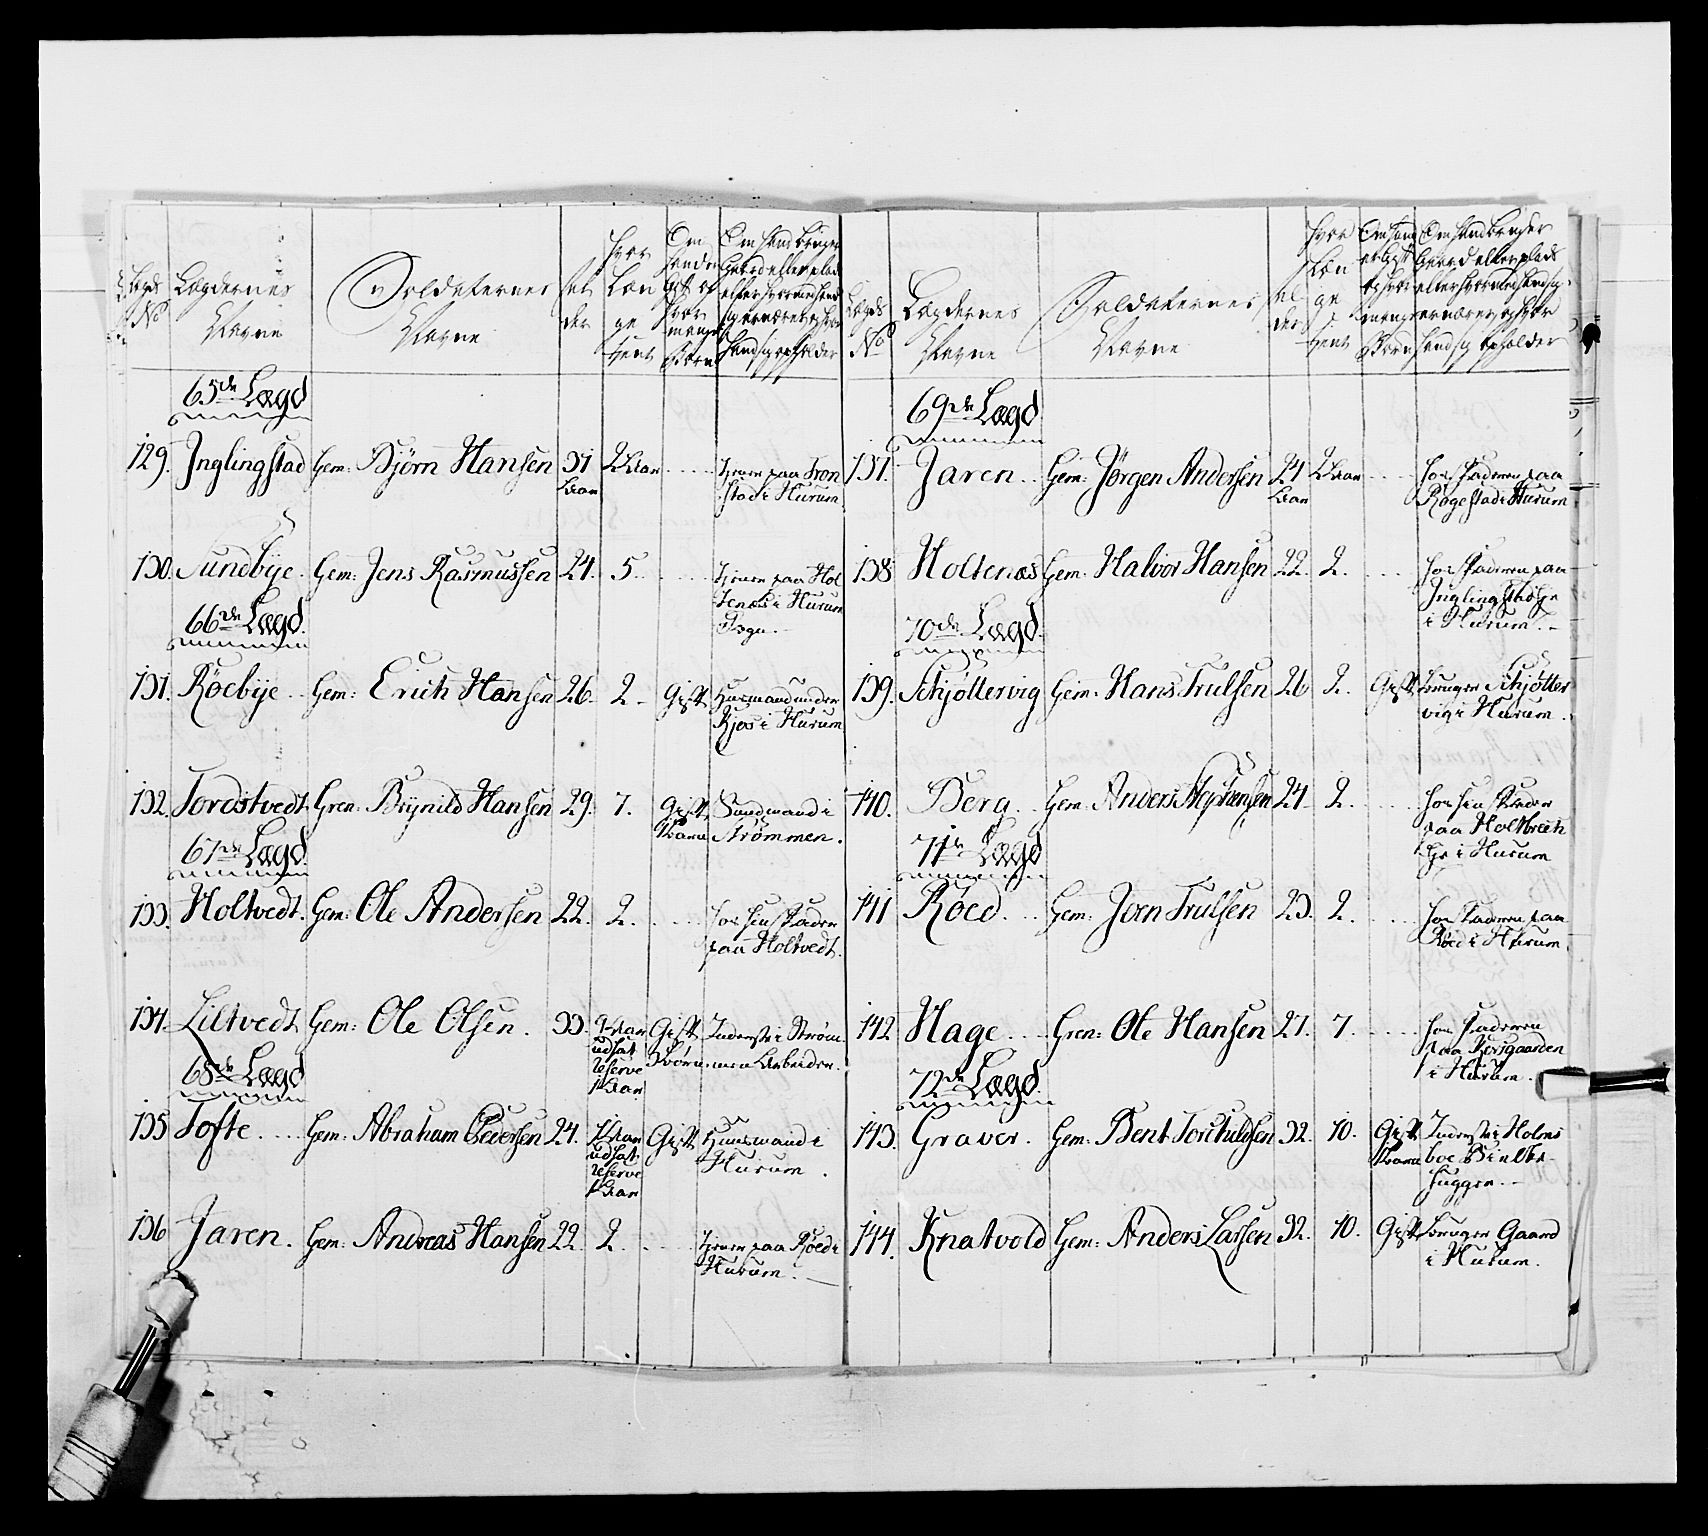 Lægds No
Lægdernes Navne
Soldaternes Navne
al der
hvor læn ge tient
Om hand er gift og hvor mange Børn
Om hand bruger Gaard eller plads eller hvormed hand sig ernærer og hvor hand sig opholder
65de Lægd
129. Inglingstad Gem: Bjørn Hansen 31 Aar 2 Aar tjener paa Tronstad i Hurum
130. Sundbye. Gem: Jens Rasmussen 24. 5. tjener paa Holtenæs i Hurum Sogn.
66de Lægd.
131. Røebye Gem: Erich Hansen 26. 2 Gift Husmand under Kjøs i Hurum
132. Tordstvedt. Gren: Brynild Hansen 29. 7. Gift 1 Barn Sandmand i Strømmen.
67de Lægd.
133. Holtvedt. Gem: Ole Andersen 22. 2. hos sin Fader paa Holtvedt.
134. Liltvedt Gem: Ole Olsen. 33. 9 Aar udsat reserve 1 Aar Gift Inderste i Strømmen Arbeider.
68de Lægd
135 Tofte Gem: Abraham Pedersen 24. 1 Aar udsat reserve 1 Aar Gift Huusmand i Hurum.
136 Jaren. Gem: Andreas Hansen 22. 2. tjener paa Røed i Hurum.
Lægds No
Lægdernes Navne
Soldaternes Navne
al der
hvor læn ge tient
Om hand er gift og hvor mange Børn
Om hand bruger Gaard eller plads eller hvormed hand sig ernærer og hvor hand sig opholder
69de Lægd
137. Jaren Gem: Jørgen Andersen 24 Aar 2 Aar hos Faderen paa Røgestad i Hurum
138 Holtenæs Gem: Halvor Hansen 22. 2. hos Faderen paa i Hurum.
70de Lægd.
139. Schjøttervig Gem: Hans Trulsen 26 2. Gift bruger Schjøttervig i Hurum.
140. Berg Gem: Anders Stephensen 24. 2. hos sin Fader paa i Hurum
71de Lægd
141 Røed Gem: Jorn Trulsen 23. 2. hos Faderen paa Røed i Hurum.
142 Hage Gren: Ole Hansen 27. 7. hos Faderen paa i Hurum.
72de Lægd.
143. Graver. Gem: Bent Torchildsen 32. 10. Gift 1 Barn Inderste i Holmsboe
144. Knatvold Gem: Anders Larsen 32. 10. Gift bruger Gaard i Hurum.